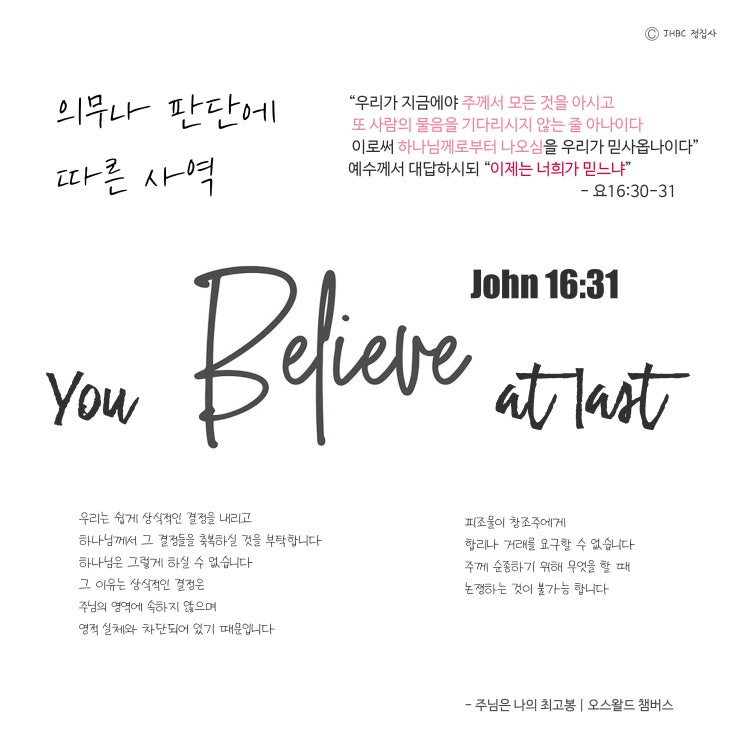 Ⓒ JHBC 정집사
의무나 판단에
따른 사역
“우리가 지금에야 주께서 모든 것을 아시고
또 사람의 물음을 기다리시지 않는 줄 아나이다
이로써 하나님께로부터 나오심을 우리가 믿사옵나이다”
예수께서 대답하시되 “이제는 너희가 믿느냐”
- 요16:30-31
John 16:31
You Believe at last
우리는 쉽게 상식적인 결정을 내리고
하나님께서 그 결정들을 축복하실 것을 부탁합니다
하나님은 그렇게 하실 수 없습니다
그 이유는 상식적인 결정은
주님의 영역에 속하지 않으며
영적 실체와 차단되어 있기 때문입니다
피조물이 창조주에게
합리나 거래를 요구할 수 없습니다
주께 순종하기 위해 무엇을 할 때
논쟁하는 것이 불가능 합니다
- 주님은 나의 최고봉 | 오스왈드 챔버스